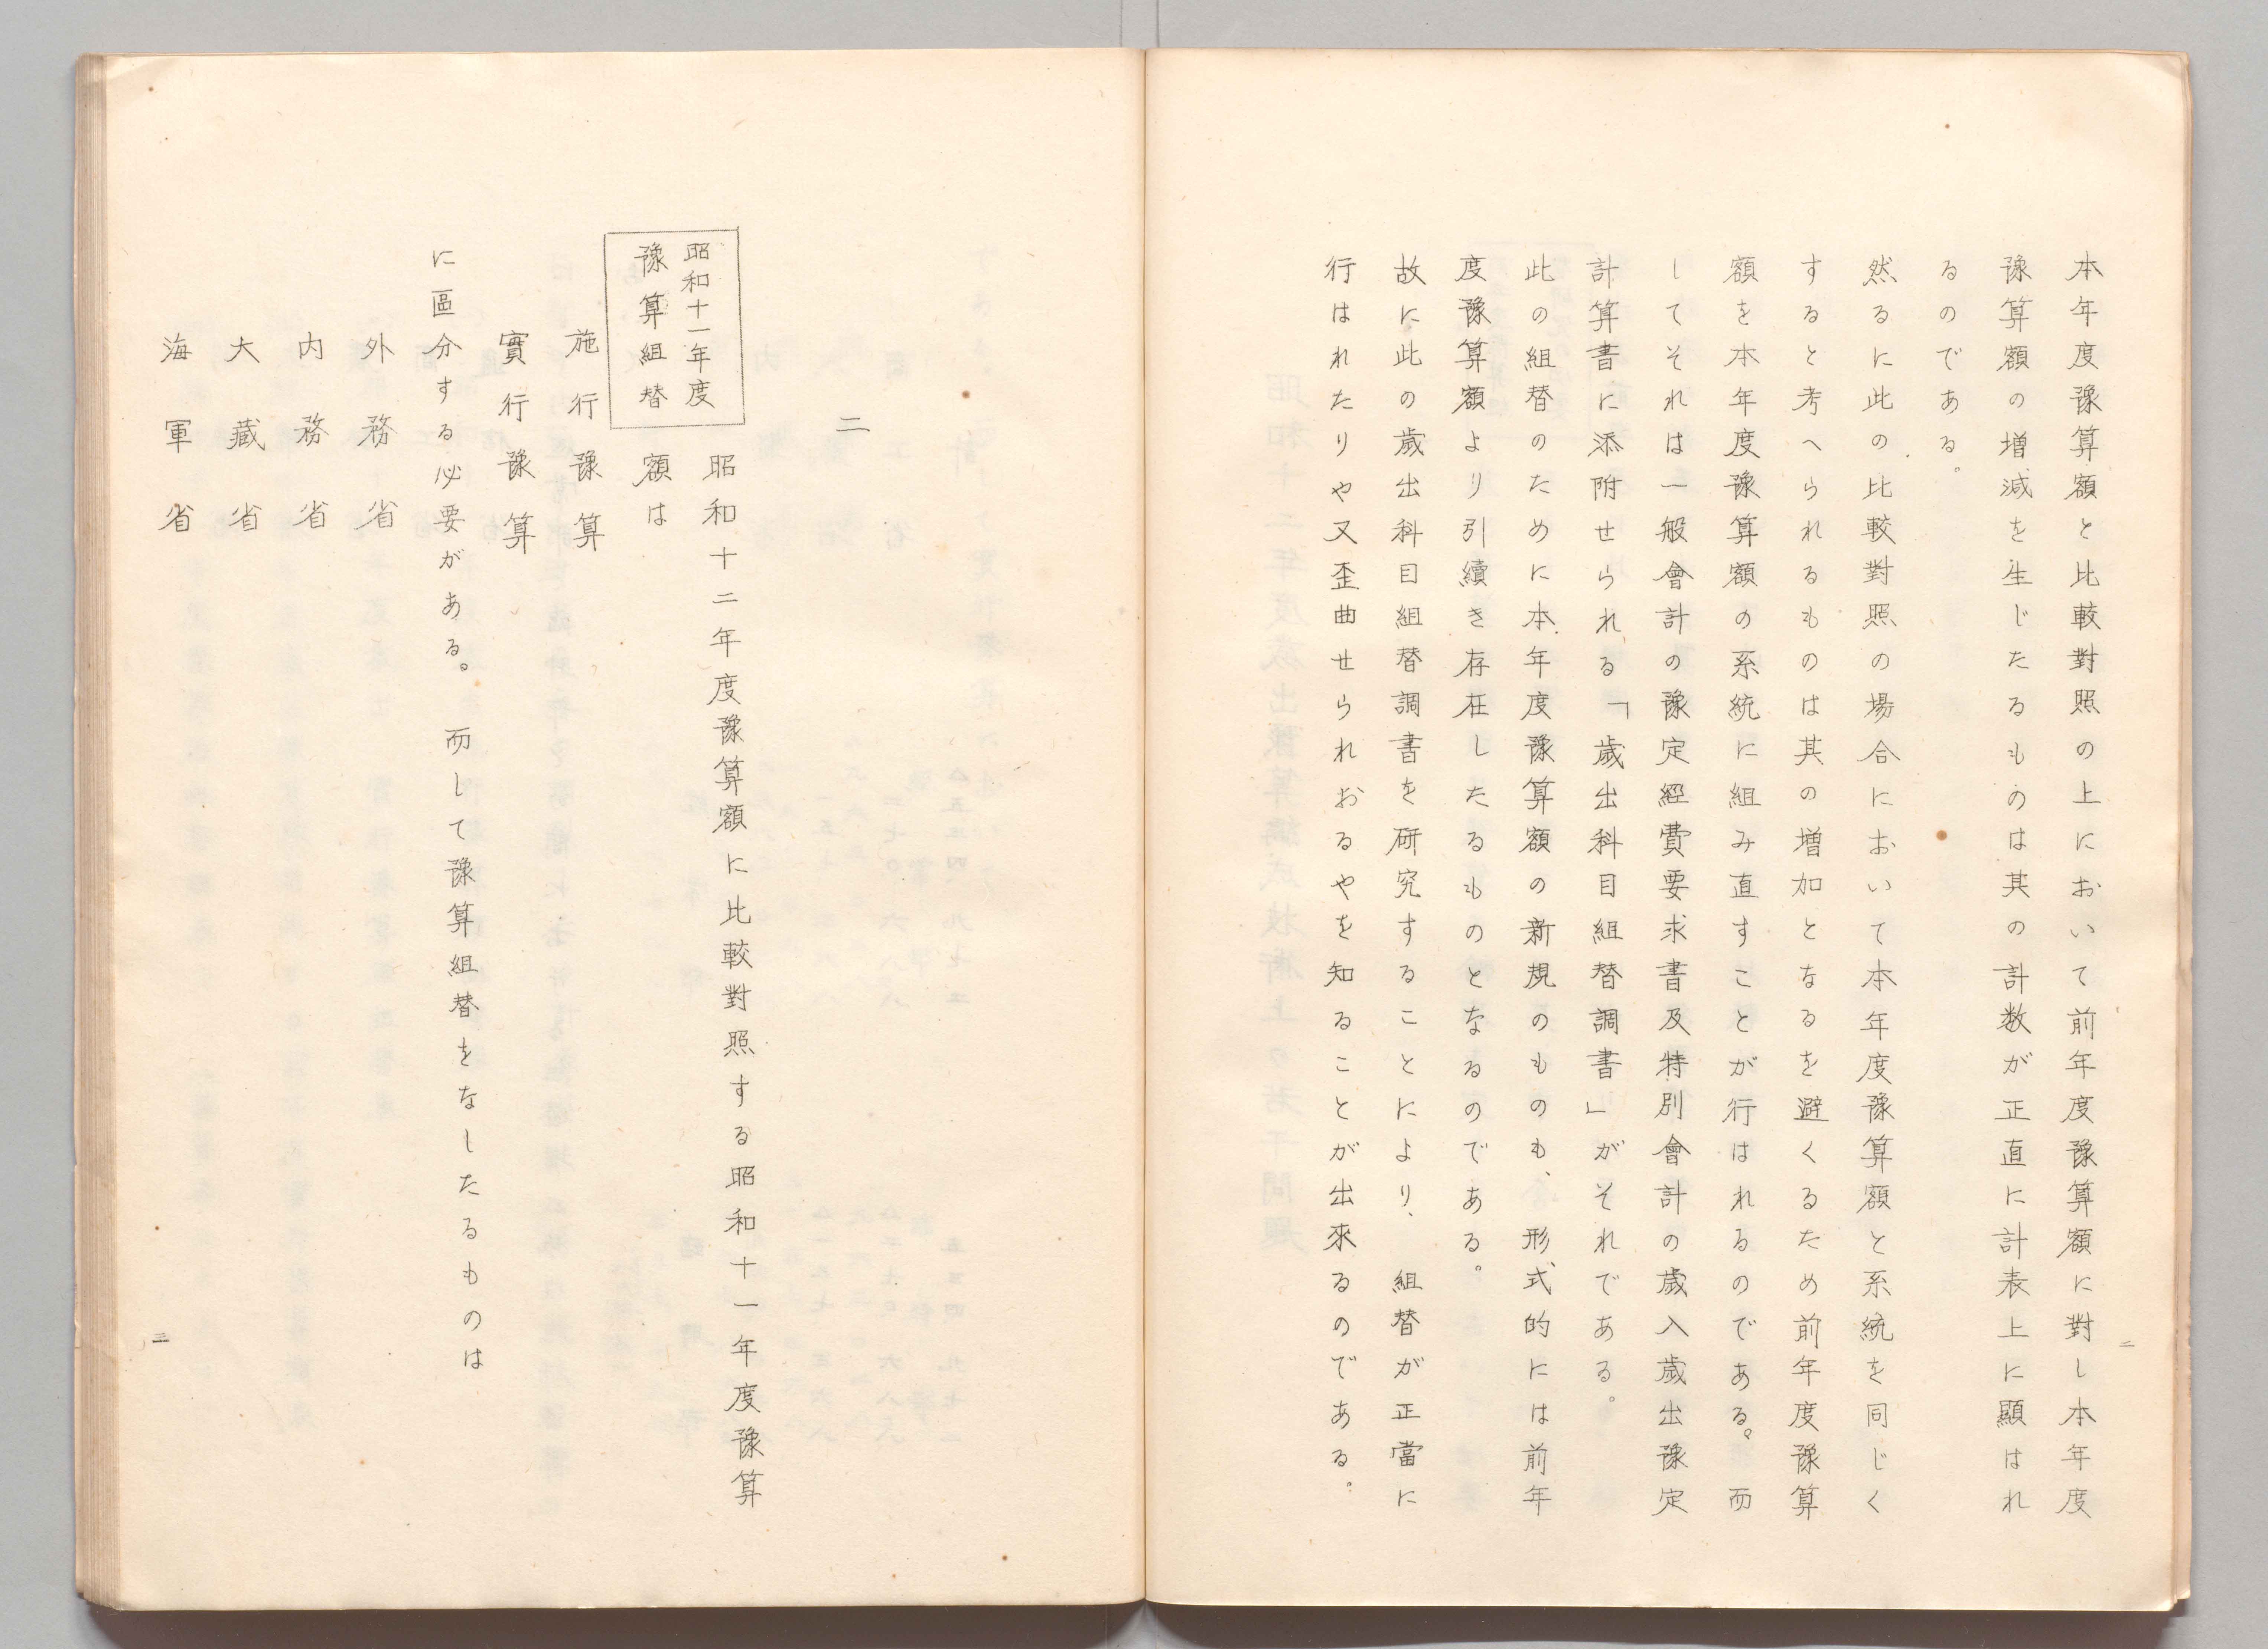 本年度豫算額と比較對照の上において前年度豫算額に對し本年度
豫算額の増減を生じたるものは其の計数が正直に計表上に顯はれ
るのである。
然るに此の比較對照の場合において本年度豫算額と系統を同じく
すると考へられるものは其の増加となるを避くるため前年度豫算
額を本年度豫算額の系統に組み直すことが行はれるのである。而
してそれは一般會計の豫定經費要求書及特別會計の歳入歳出豫定
計算書に添附せられる「歳出科目組替調書」がそれである。
此の組替のために本年度豫算額の新規のものも、形式的には前年
度豫算額より引續き存在したるものとなるのである。
故に此の歳出科目組替調書を研究することにより、組替が正當に
行はれたりや又歪曲せられおるやを知ることが出來るのである。
二
二
昭和十一年度
豫算組替
昭和十二年度豫算額に比較對照する昭和十一年度豫算
額は
施行豫算
實行豫算
に區分する必要がある。而して豫算組替をなしたるものは
外務省
内務省
大藏省
海軍省
三